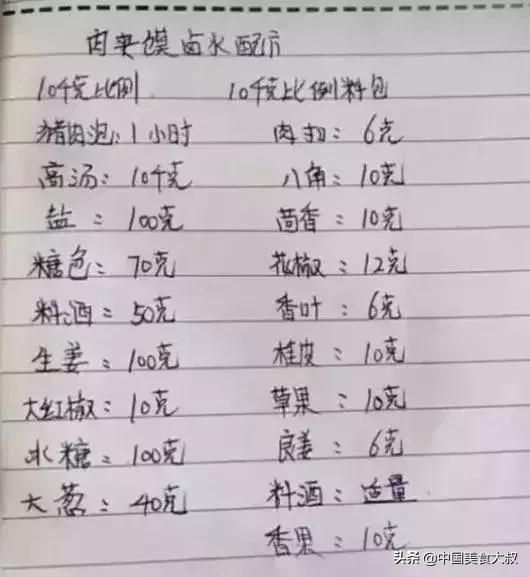 肉夹馍卤水配方
10千克比例 10千克比例料包
猪肉泡:1小时 肉扣:6克
高汤:10千克 八角:10克
盐:100克 茴香:10克
糖色:70克 花椒:12克
料酒:50克 香叶:6克
生姜:100克 桂皮:10克
大红椒:10克 草果:10克
冰糖:100克 良姜:6克
大葱:40克 料酒:适量
香果:10克
头条@中国美食大叔